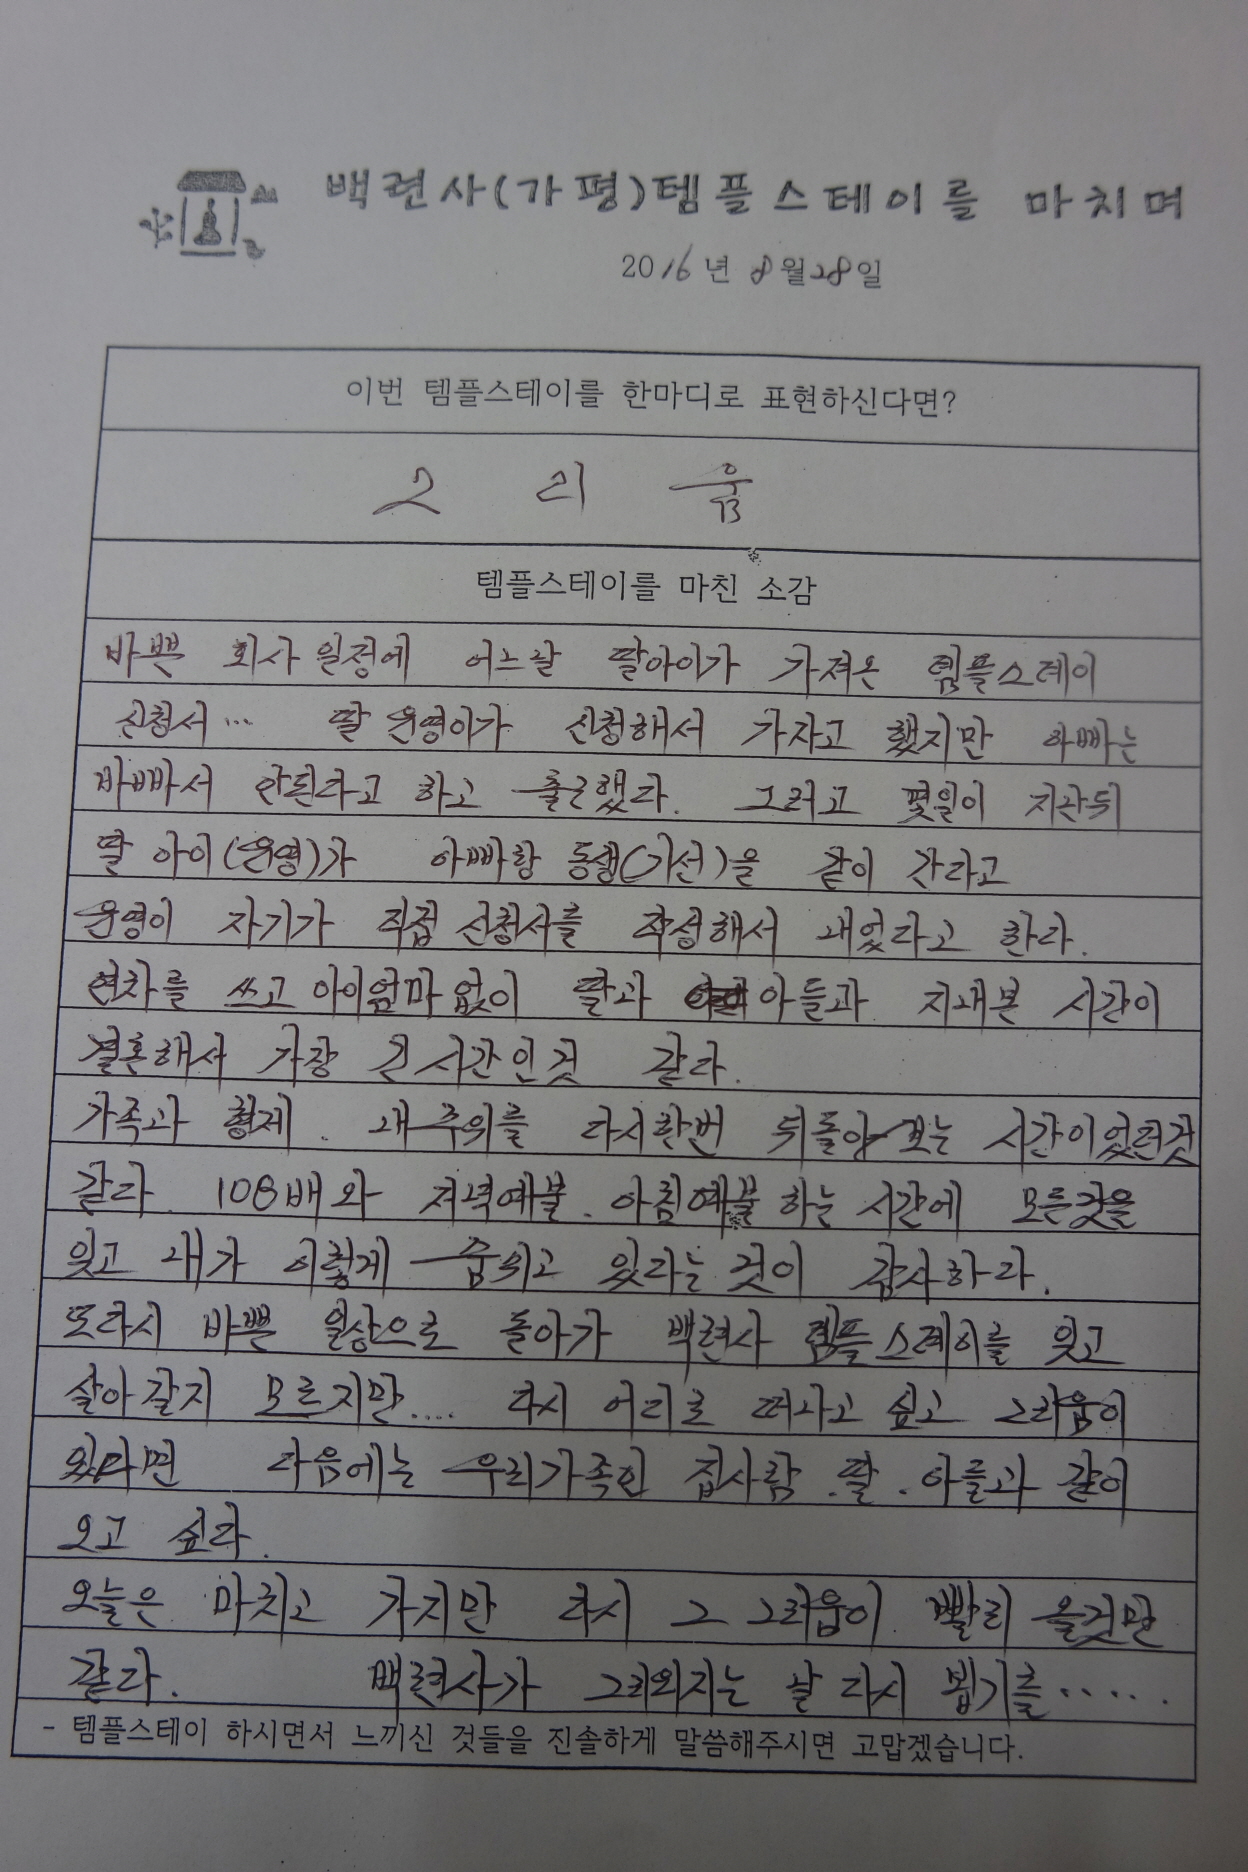 백련사(가평)템플스테이를 마치며
2016년 8월28일
이번 템플스테이를 한마디로 표현하신다면?
그 리 움
템플스테이를 마친 소감
바쁜 회사 일정에 어느날 딸아이가 가져온 템플스테이
신청서... 딸 운영이가 신청해서 가자고 했지만 아빠는
바빠서 안된다고 하고 출근했다. 그러고 몇일이 지난뒤
딸 아이(운영)가 아빠랑 동생(기선)을 같이 간라고
운영이 자기가 직접 신청서를 작성해서 내었다고 한다.
연차를 쓰고 아이엄마 없이 딸과 아들과 지내본 시간이
결혼해서 가장 긴 시간인것 같다.
가족과 형제. 내 주위를 다시한번 뒤돌아 보는 시간이었던것
같다. 108배와 저녁예불. 아침예불 하는 시간에 모든것을
잊고 내가 이렇게 숨쉬고 있다는 것이 감사하다.
또다시 바쁜 일상으로 돌아가 백련사 템플스테이를 잊고
살아갈지 모르지만.... 다시 어디로 떠나고 싶고 그리움이
있다면 다음에는 우리가족인 집사람. 딸. 아들과 같이
오고 싶다.
오늘은 마치고 가지만 다시 그 그리움이 빨리 올것만
같다. 백련사가 그리워지는 날 다시 뵙기를.....
- 템플스테이 하시면서 느끼신 것들을 진솔하게 말씀해주시면 고맙겠습니다.